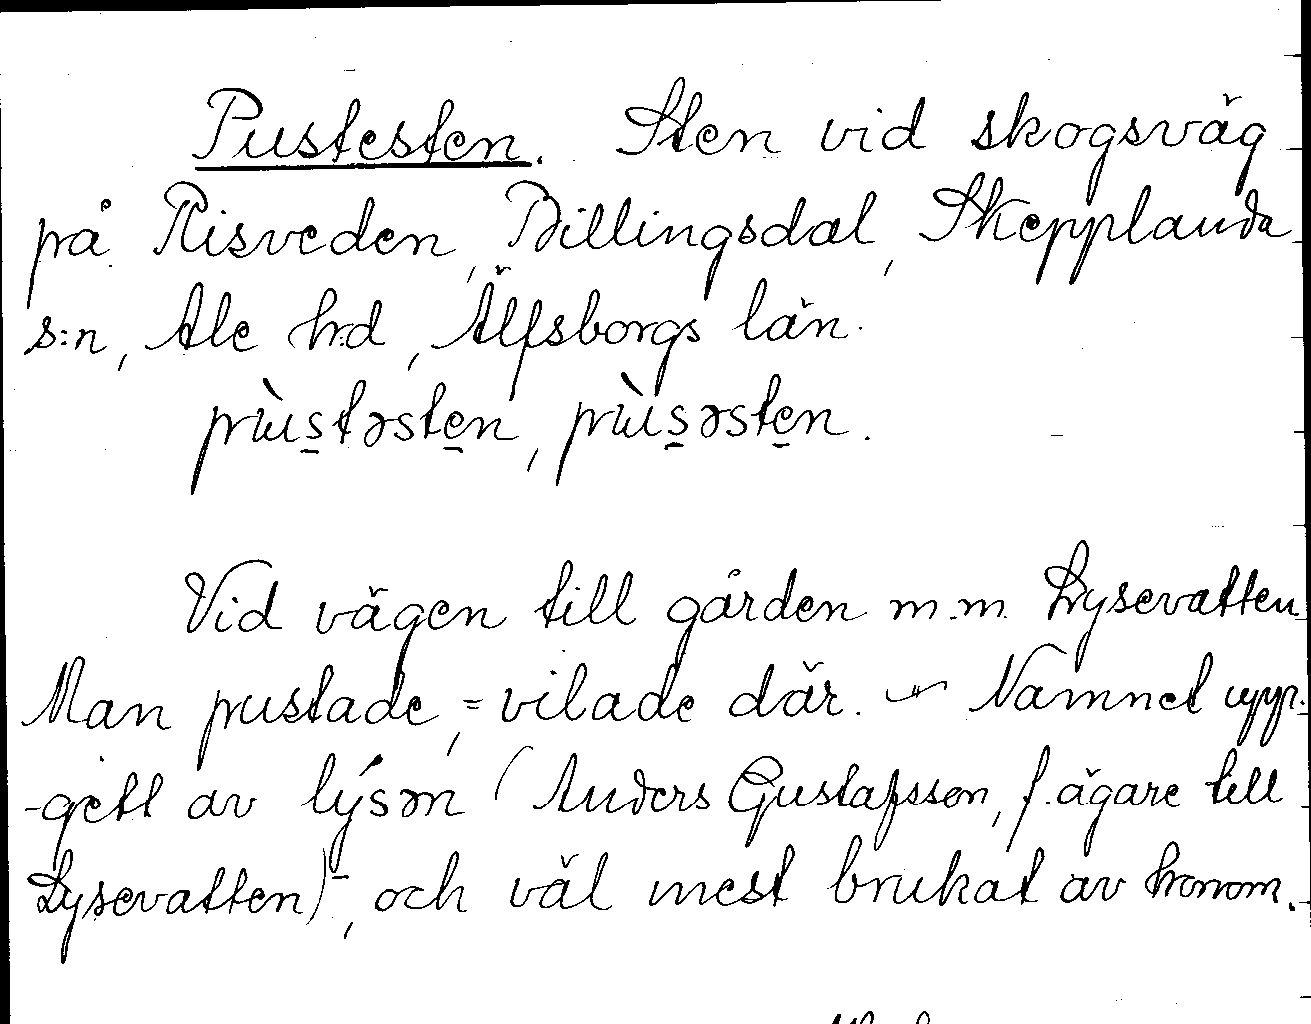 Pustesten. Sten vid skogsväg
på Risveden, Billingsdal, Skepplanda
s:n, Ale h:d, Älfsborgs län.
pùstəsten, pùsəsten.
Vid vägen till gården m.m. Lysevatten
Man pustade, = vilade där. — Namnet upp-
-gett av lýsən (Anders Gustafsson, f. ägare till
Lysevatten), och väl mest brukat av honom.